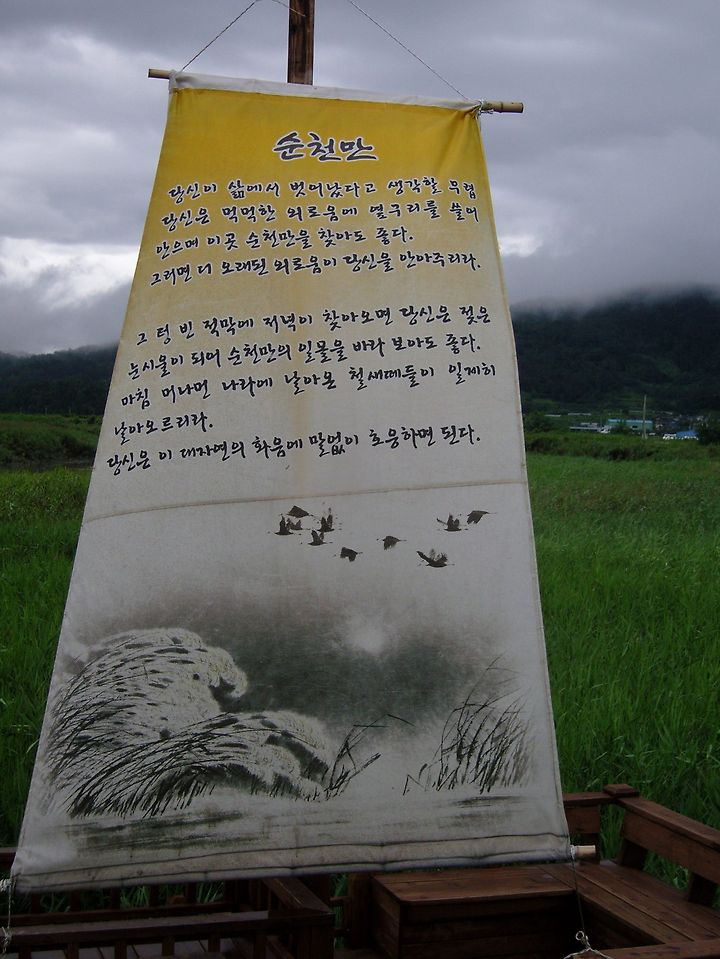 순천만
당신이 삶에서 벗어났다고 생각할 무렵
당신은 먹먹한 외로움에 옆구리를 쓸어
안으며 이곳 순천만을 찾아도 좋다.
그러면 더 오래된 외로움이 당신을 안아주리라.
그 텅 빈 적막에 저녁이 찾아오면 당신은 젖은
눈시울이 되어 순천만의 일몰을 바라 보아도 좋다.
마침 머나먼 나라에 날아온 철새떼들이 일제히
날아오르리라.
당신은 이 대자연의 화음에 말없이 호응하면 된다.